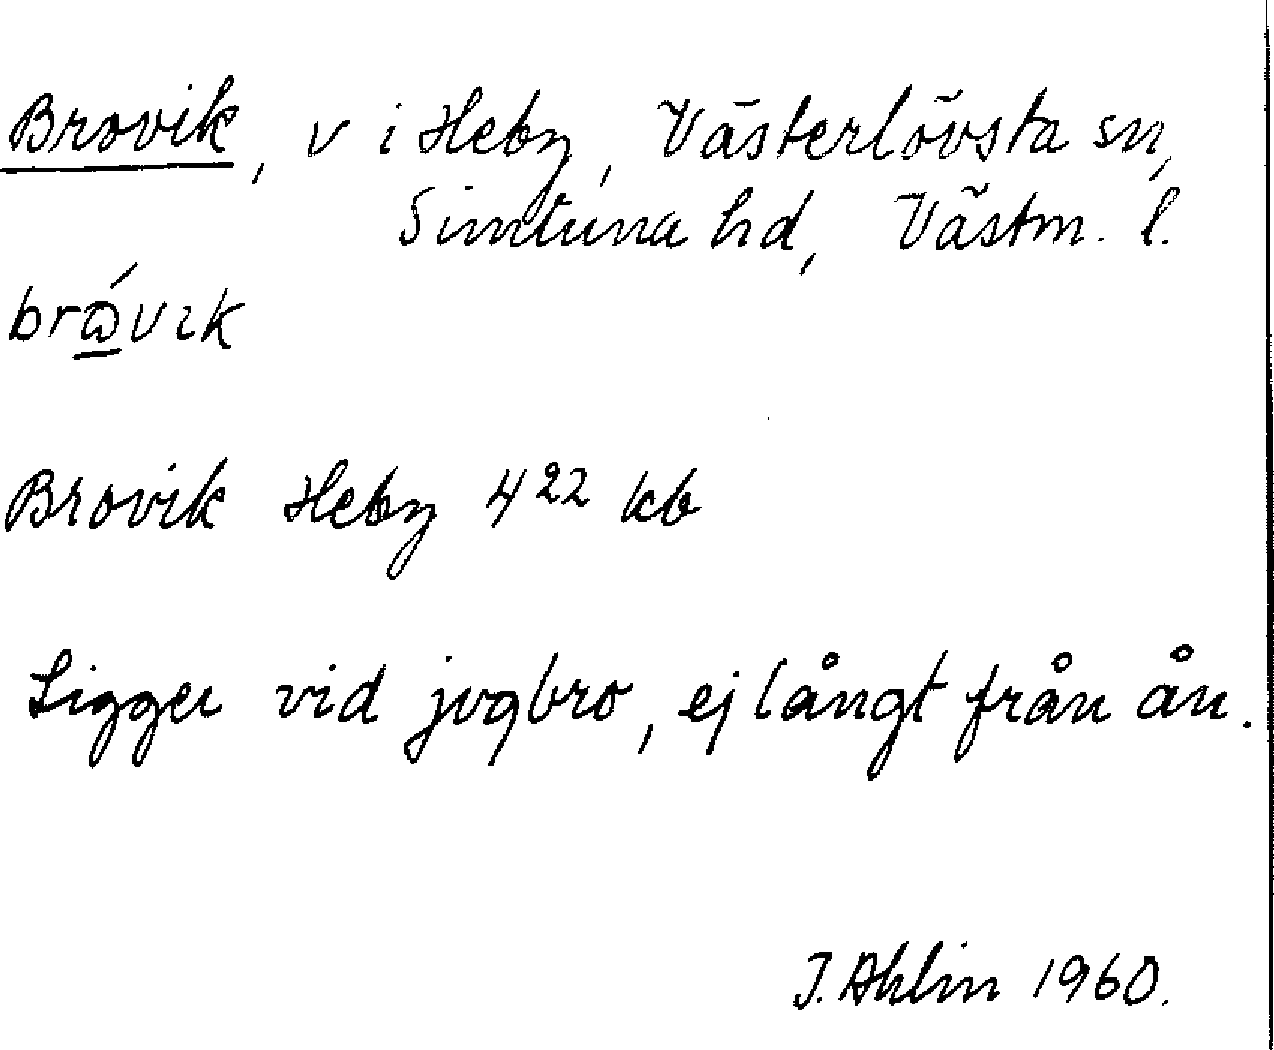 Brovik, v i Heby, Västerlövsta sn,
Simtuna hd, Västm. l.
brώvɩk
Brovik Heby 4²² kb
Ligger vid jvgbro, ej långt från ån.
J. Ahlin 1960.